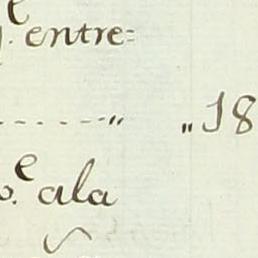 entre=
" "18
o.e ala